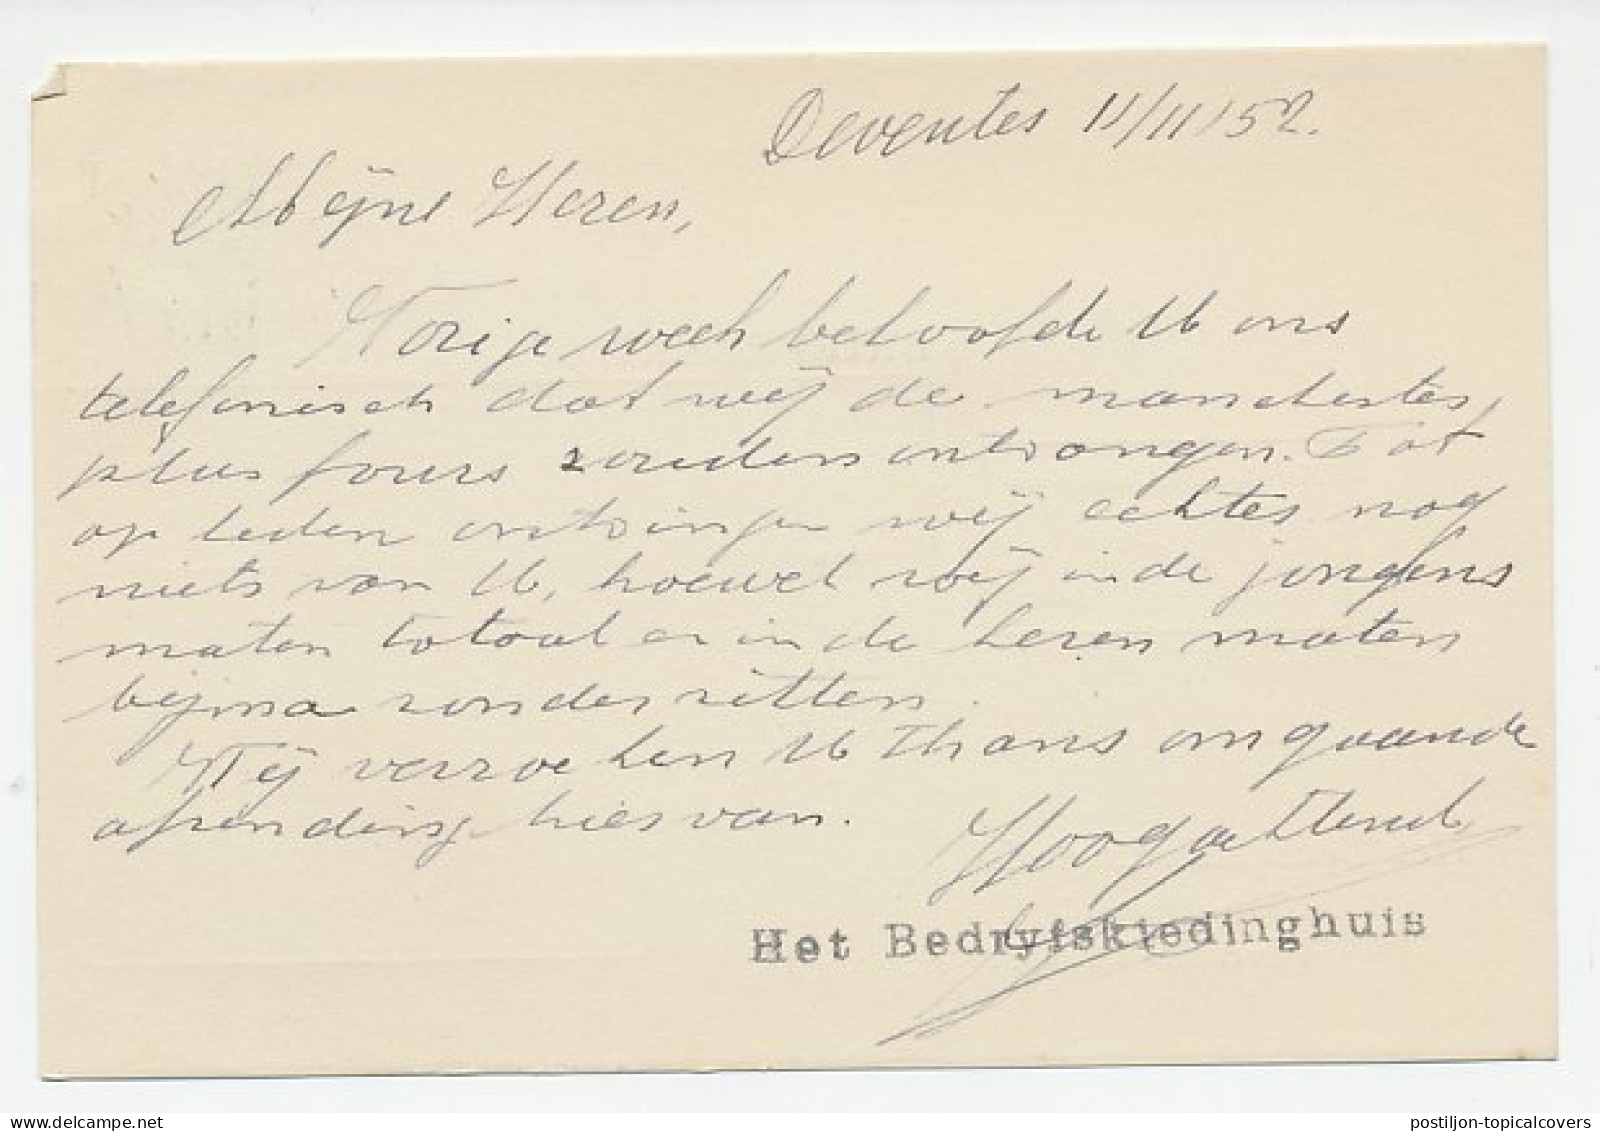 Deventer 11/11 '52.
Mijne Heren,
Vorige week beloofde U ons
telefonisch dat wij de manchester
plus fours zouden ontvangen. Tot
op heden ontvingen wij echter nog
niets van U, hoewel wij in de jongens
maten totaal en in de heren maten
bijna zonder zitten.
Wij verzoeken U thans omgaande
afzending hiervan.
Hoogachtend,
Het Bedryfskledinghuis
postiljon-topicalcovers
www.delcampe.net